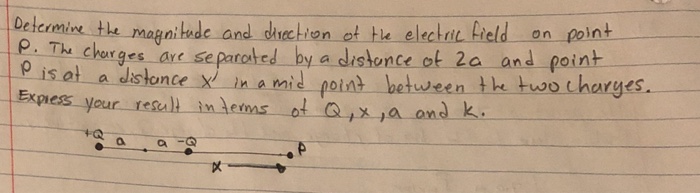 Determine the magnitude and direction of the electric field on point
P. The charges are separated by a distance of 2a and point
P is at a distance x' in a mid point between the two charges.
Express your result in terms of Q, x, a and k.
+Q a a -Q P
x